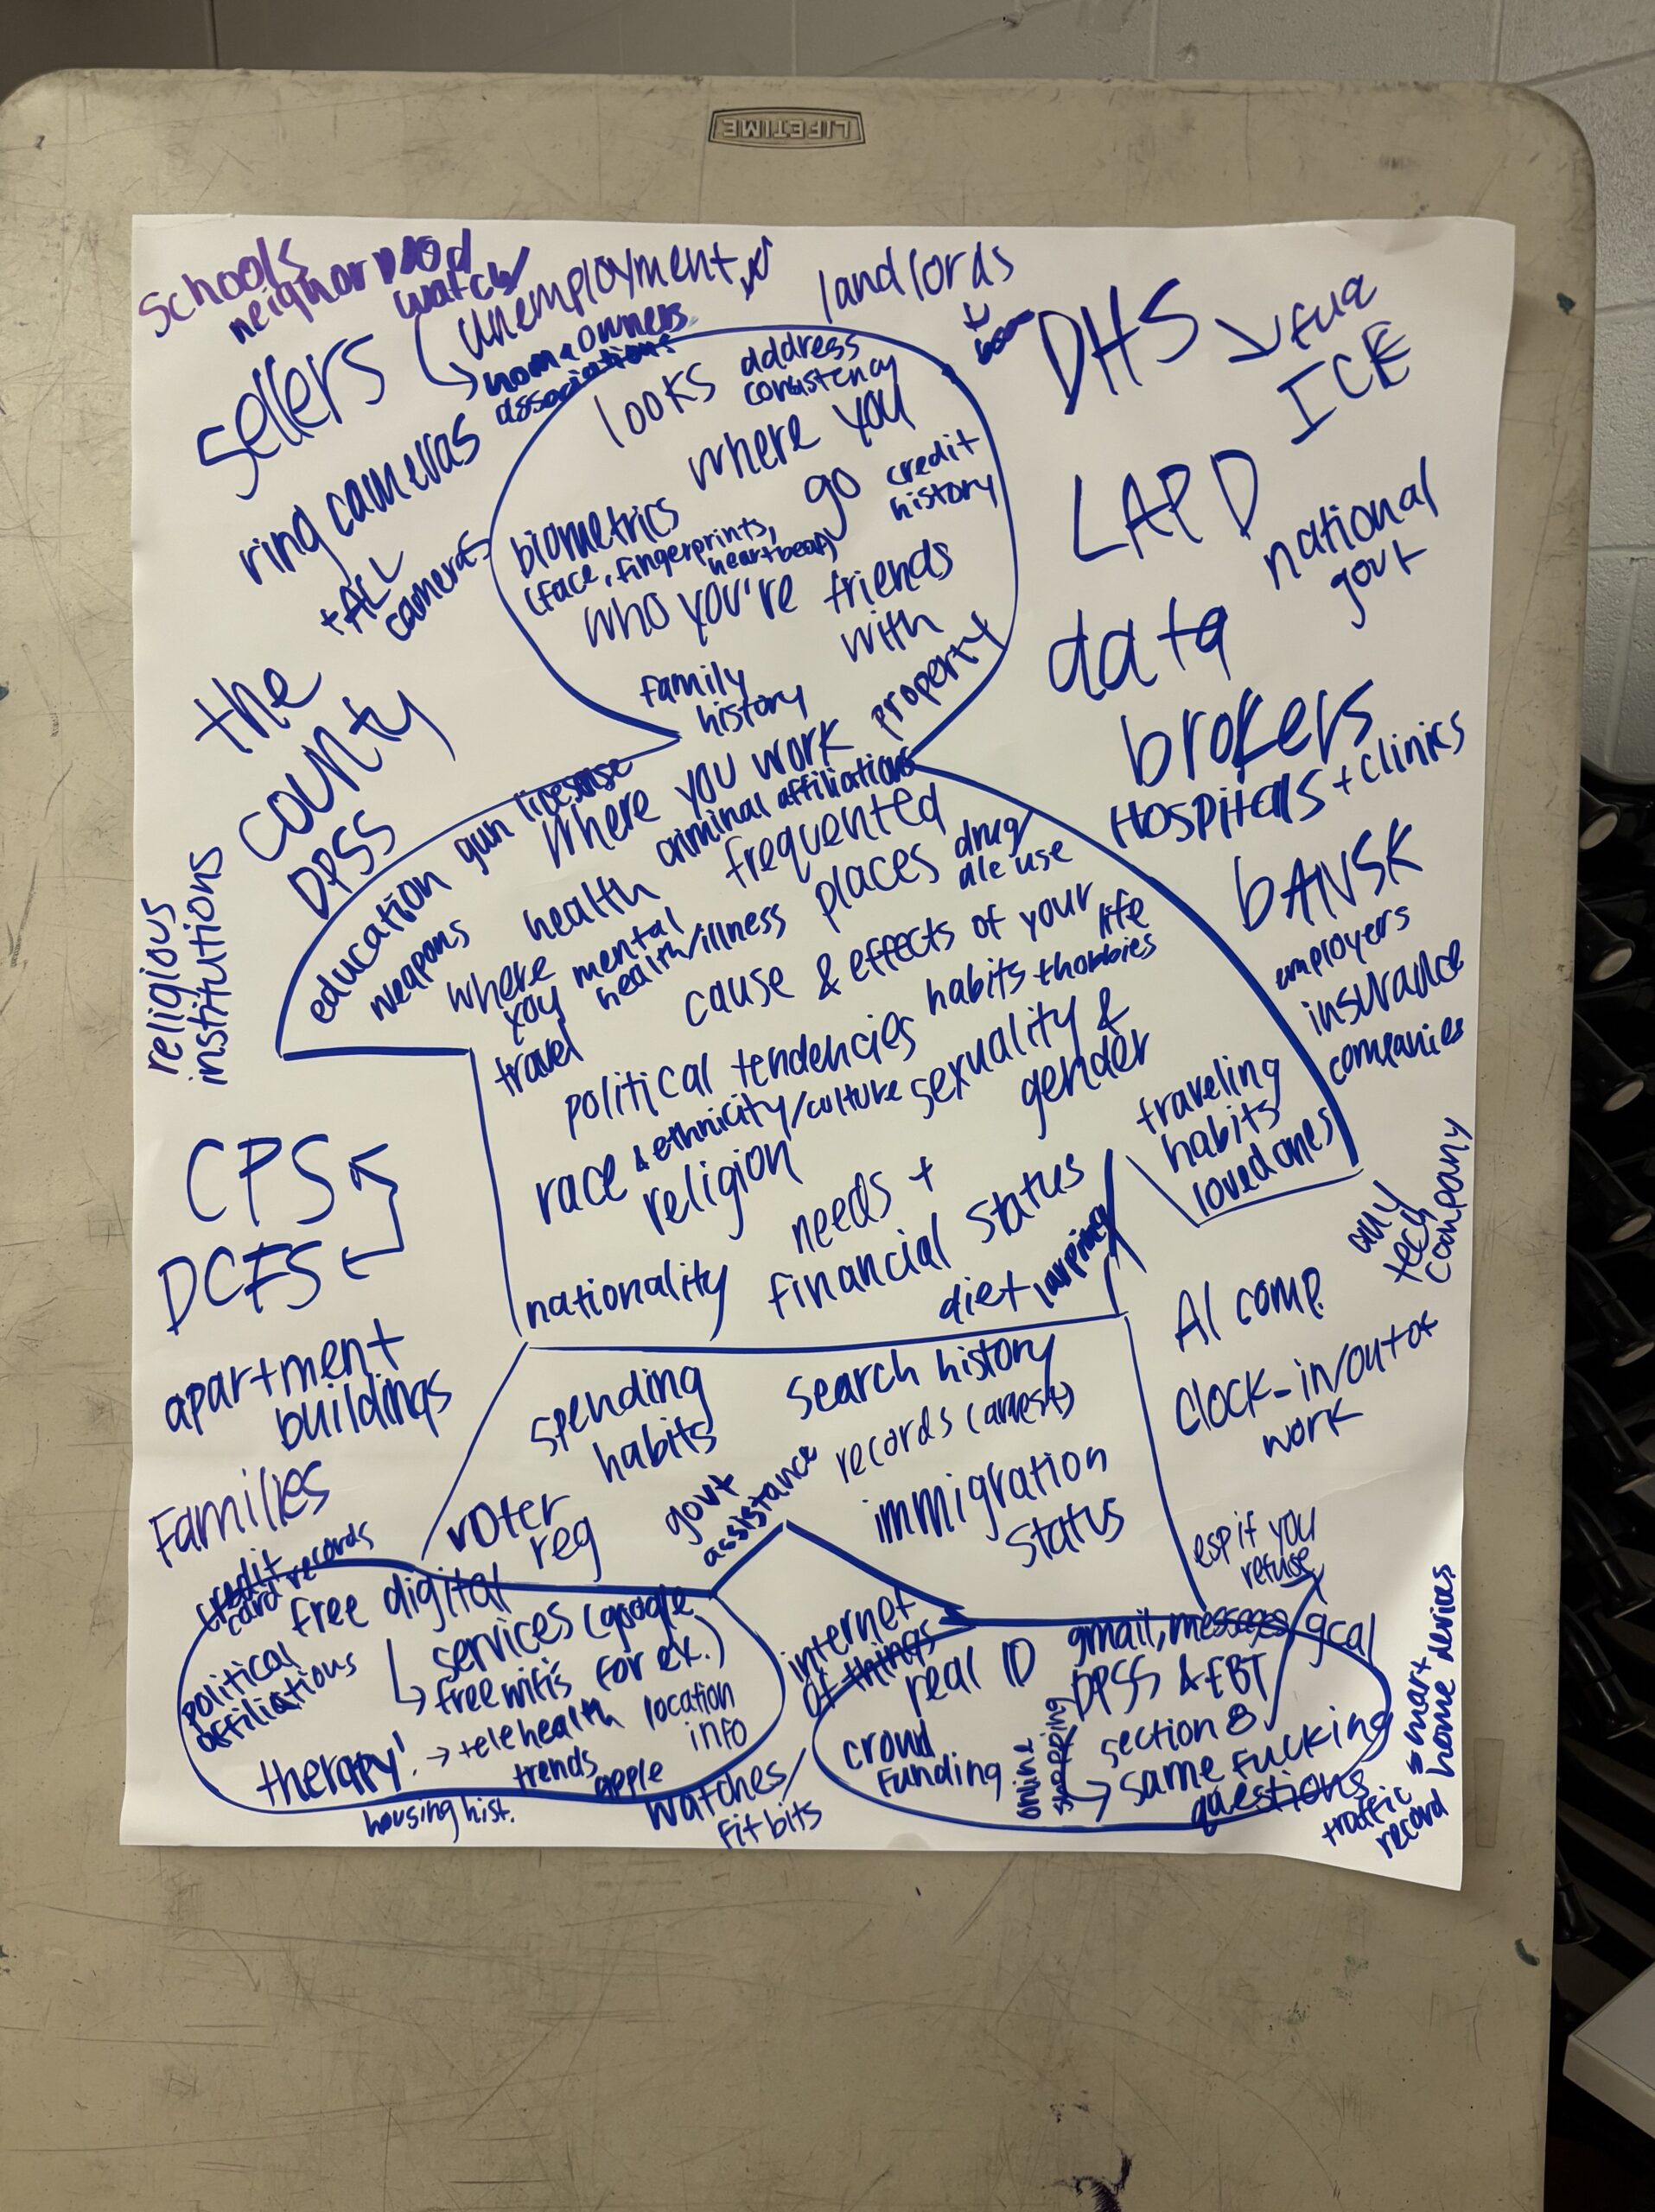 LIFETIME
Schools
neighborhood
watch
unemployment
home owners
associations
landlords
sellers
ring cameras
+ ALL
cameras
the
county
DPSS
religious
institutions
CPS
DCFS
apartment
buildings
Families
credit
card records
DHS
fua
ICE
LAPD
national
govt
data
brokers
Hospitals + clinics
bANSK
employers
insurance
companies
any
tech
company
AI comp
clock-in/out of
work
esp if you
refuse
smart
home devices
traffic
record
looks
address
consistency
where you
go
credit
history
biometrics
(face, fingerprints,
heartbeat)
who you're friends
with
family
history
property
where you work
criminal affiliations
gun license
education
weapons
health
frequented
places
drug/
alc use
where
you
travel
mental
health/illness
cause & effects of your life
habits + hobbies
political tendencies
sexuality &
gender
race & ethnicity/culture
religion
traveling
habits
loved ones
needs +
financial status
nationality
diet
spending
habits
search history
records (arrest)
voter
reg
govt
assistance
immigration
status
free digital
services (google
for ex.)
free wifi's
political
affiliations
therapy! → telehealth
location
info
trends
apple
watches/
fitbits
housing hist.
internet
of things
real ID
gmail, messages/gcal
DPSS & EBT
section 8
same fucking
questions
crowd
funding
online
shopping